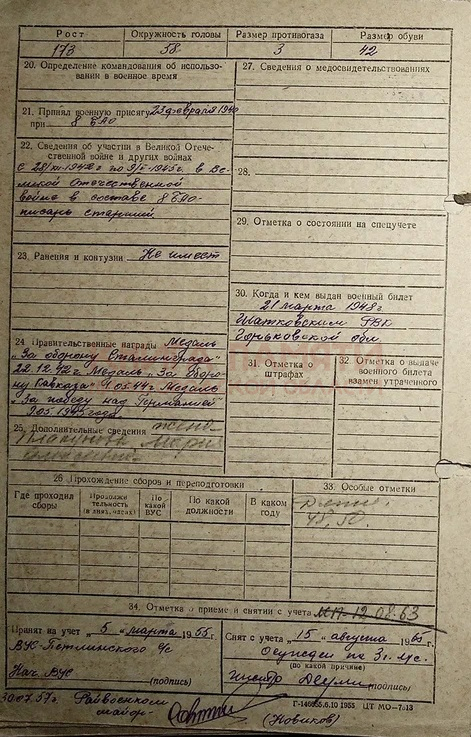 Рост Окружность головы Размер противогаза Размер обуви
173 58 3 42
20. Определение командования об использовании в военное время
21. Принял военную присягу 23 февраля 1940
при 8 БАО
22. Сведения об участии в Великой Отечественной войне и других войнах
в составе 8 БАО-
писарь старший
23. Ранения и контузии Не имеет
24. Правительственные награды Медаль
"За оборону Сталинграда"
22.12.42г. Медаль "За оборону
Кавказа" 1.05.44г. Медаль
"За победу над Германией"
9.05.1945 года
25. Дополнительные сведения жена
Мария
26. Прохождение сборов и переподготовки
Где проходил сборы
Продолжительность (в днях, часах)
По какой ВУС
По какой должности
В каком году
27. Сведения о медосвидетельствованиях
28.
29. Отметка о состоянии на спецучете
30. Когда и кем выдан военный билет
21 марта 1948г.
Шатковским РВК
Горьковской обл.
31. Отметка о штрафах
32. Отметка о выдаче военного билета взамен утраченного
33. Особые отметки
34. Отметка о приеме и снятии с учета МП-12.08.63
Принят на учет "5" марта 1955г.
Нач. ВУС
(подпись)
Снят с учета "15" августа 1963г.
(по какой причине)
(подпись)
30.07.57г. Райвоенком
майор-
(Новиков)
Г-146955.6.10 1955 ЦТ МО-713